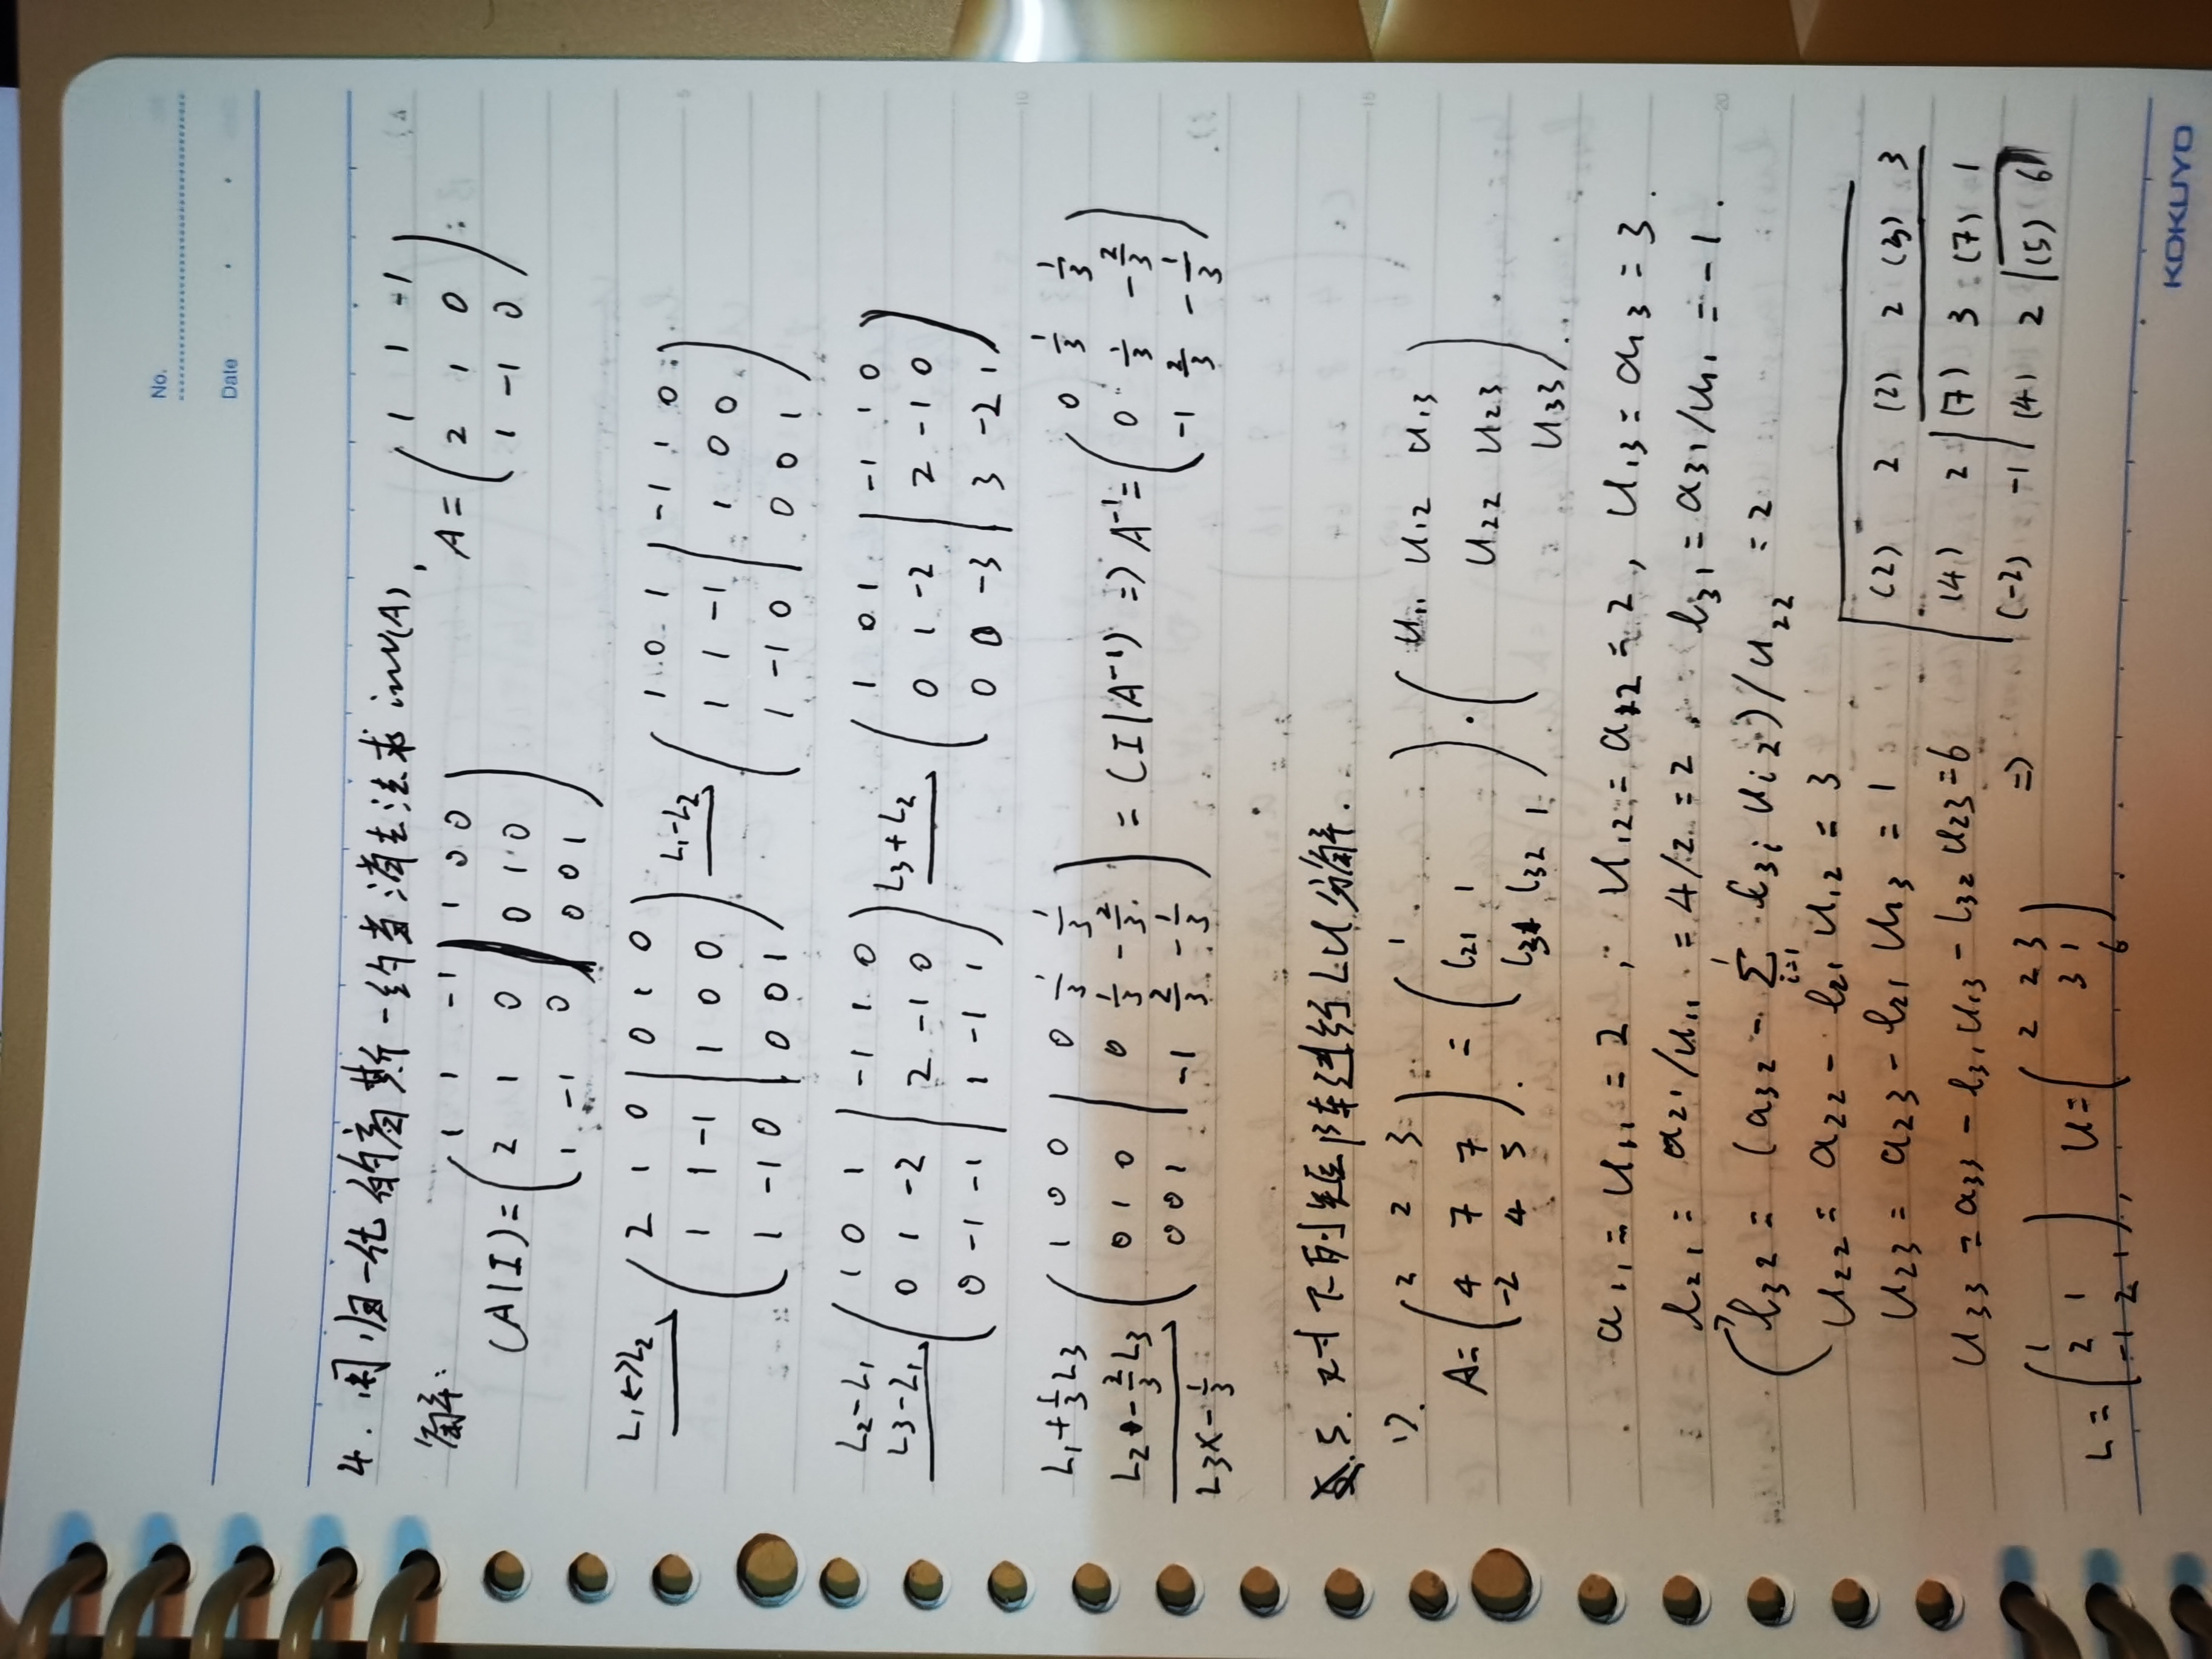 No.
Date
4. 用归一化的高斯-约当消去法求inv(A), A = ( 1 1 -1
2 1 0
1 -1 0 ).
解:
(A|I) = ( 1 1 -1 | 1 0 0
2 1 0 | 0 1 0
1 -1 0 | 0 0 1 )
L₁↔L₂ ( 2 1 0 | 0 1 0
1 1 -1 | 1 0 0
1 -1 0 | 0 0 1 ) L₁-L₂ ( 1 0 1 | -1 1 0
1 1 -1 | 1 0 0
1 -1 0 | 0 0 1 )
L₂-L₁
L₃-L₁ ( 1 0 1 | -1 1 0
0 1 -2 | 2 -1 0
0 -1 -1 | 1 -1 1 ) L₃+L₂ ( 1 0 1 | -1 1 0
0 1 -2 | 2 -1 0
0 0 -3 | 3 -2 1 )
L₁+⅓L₃
L₂+-⅔L₃
L₃×-⅓ ( 1 0 0 | 0 ⅓ ⅓
0 1 0 | 0 ⅓ -⅔
0 0 1 | -1 ⅔ -⅓ ) = (I|A⁻¹) => A⁻¹ = ( 0 ⅓ ⅓
0 ⅓ -⅔
-1 ⅔ -⅓ )
5. 对下列矩阵进行LU分解.
1).
A = ( 2 2 3
4 7 7
-2 4 5 ) = ( 1
l₂₁ 1
l₃₁ l₃₂ 1 ) · ( u₁₁ u₁₂ u₁₃
u₂₂ u₂₃
u₃₃ ).
a₁₁ = u₁₁ = 2, u₁₂ = a₁₂ = 2, u₁₃ = a₁₃ = 3.
l₂₁ = a₂₁/u₁₁ = 4/2 = 2. l₃₁ = a₃₁/u₁₁ = -1.
l₃₂ = (a₃₂ - Σ l₃ᵢ uᵢ₂)/u₂₂ = 2
u₂₂ = a₂₂ - l₂₁ u₁₂ = 3
u₂₃ = a₂₃ - l₂₁ u₁₃ = 1
u₃₃ = a₃₃ - l₃₁ u₁₃ - l₃₂ u₂₃ = 6
=> (2) 2 (2) 2 (3) 3
(4) 2 (7) 3 (7) 1
(-2) -1 (4) 2 (5) 6
L = ( 1
2 1
-1 2 1 ), U = ( 2 2 3
3 1
6 )
KOKUYO